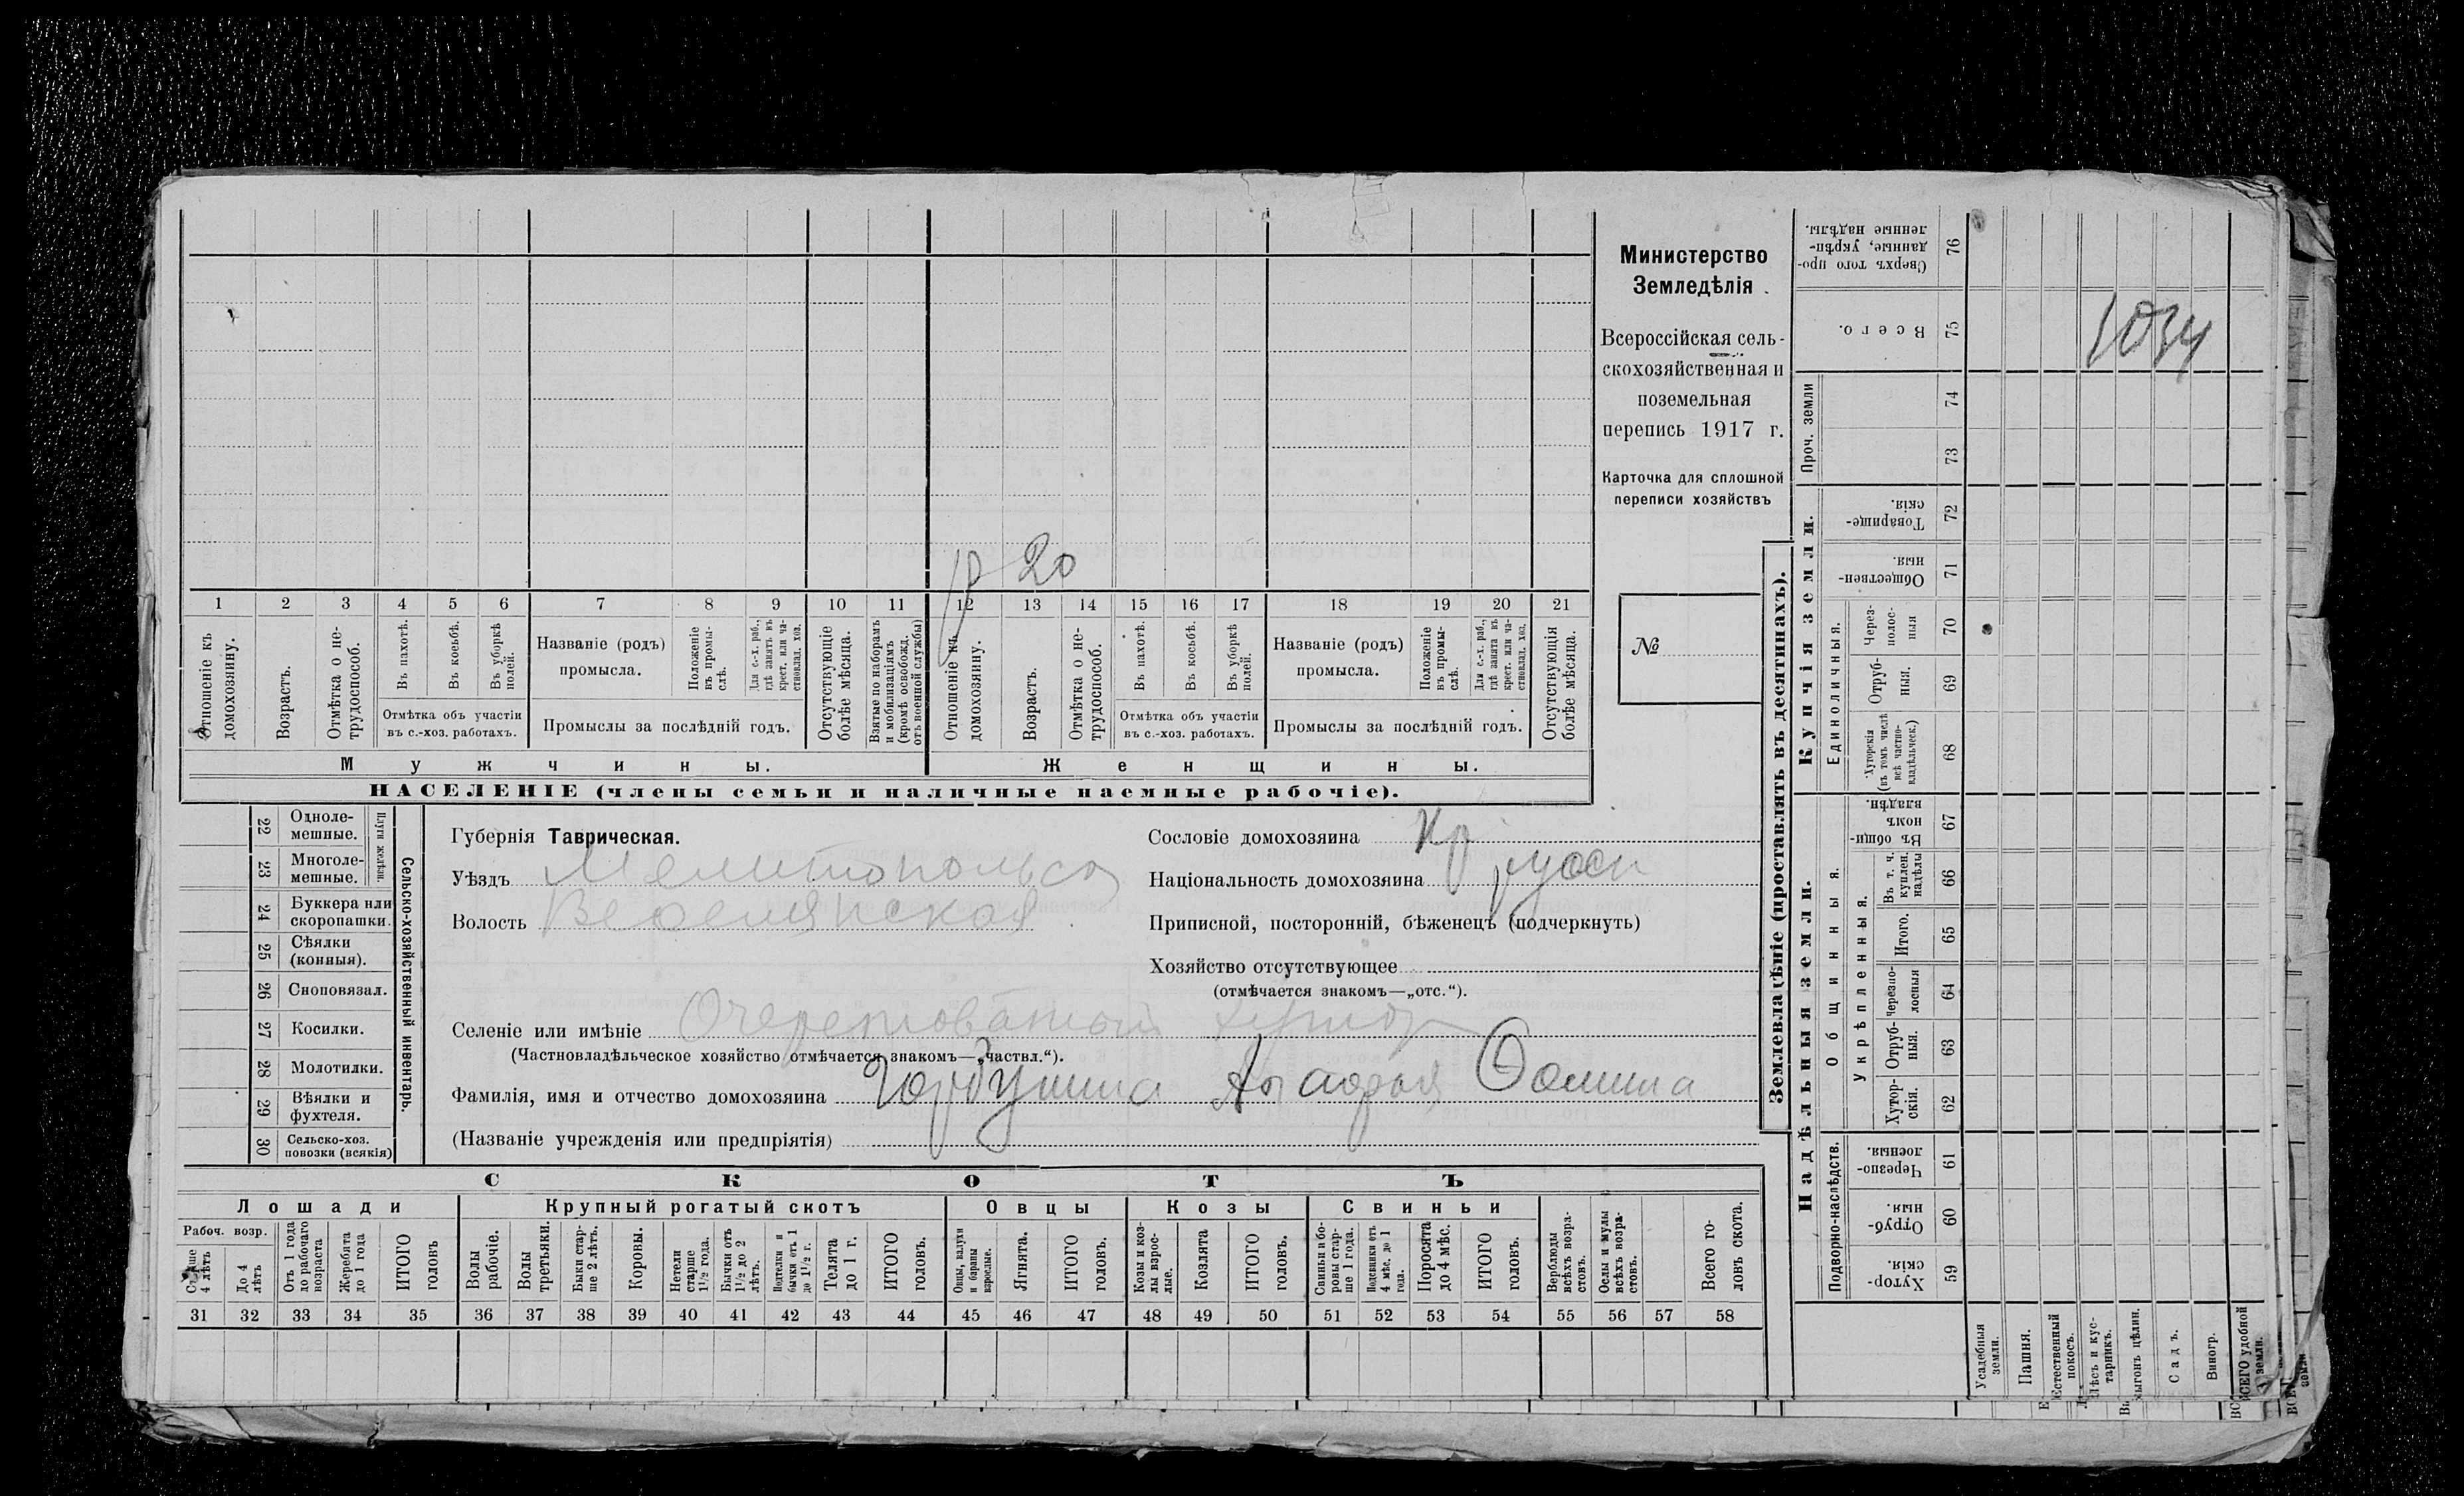 1 2 3 4 5 6 7 8 9 10 11 12 13 14 15 16 17 18 19 20 21
р 20
Отношеніе къ домохозяину.
Возрастъ.
Отмѣтка о не-
трудоспособ.
Въ пахотѣ.
Въ косьбѣ.
Въ уборкѣ
полей.
Отмѣтка объ участіи
въ с.-хоз. работахъ.
Названіе (родъ)
промысла.
Положеніе
въ промы-
слѣ.
Для с.-х. раб.,
гдѣ занятъ въ
крест. или ча-
стновлад. хоз.
Промыслы за послѣдній годъ.
Отсутствующіе
болѣе мѣсяца.
Взятые по наборамъ
и мобилизаціямъ
(кромѣ освобожд.
отъ военной службы)
Отношеніе къ
домохозяину.
Возрастъ.
Отмѣтка о не-
трудоспособ.
Въ пахотѣ.
Въ косьбѣ.
Въ уборкѣ
полей.
Отмѣтка объ участіи
въ с.-хоз. работахъ.
Названіе (родъ)
промысла.
Положеніе
въ промы-
слѣ.
Для с.-х. раб.,
гдѣ занята въ
крест. или ча-
стновлад. хоз.
Промыслы за послѣдній годъ.
Отсутствующія
болѣе мѣсяца.
Мужчины.
Женщины.
НАСЕЛЕНІЕ (члены семьи и наличные наемные рабочіе).
Министерство
Земледѣлія
Всероссійская сель-
скохозяйственная и
поземельная
перепись 1917 г.
Карточка для сплошной
переписи хозяйствъ
№
22 Одноле-
мешные.
23 Многоле-
мешные.
Плуги желѣзн.
24 Буккера или
скоропашки.
25 Сѣялки
(конныя).
26 Сноповязал.
27 Косилки.
28 Молотилки.
29 Вѣялки и
фухтеля.
30 Сельско-хоз.
повозки (всякія)
Сельско-хозяйственный инвентарь.
Губернія Таврическая.
Уѣздъ Мелитопольск
Волость Веселянская
Сословіе домохозяина Кр
Національность домохозяина русск
Приписной, посторонній, бѣженецъ (подчеркнуть)
Хозяйство отсутствующее
(отмѣчается знакомъ—„отс.“).
Селеніе или имѣніе Очеретоватый хутор
(Частновладѣльческое хозяйство отмѣчается знакомъ—„частвл.“).
Фамилія, имя и отчество домохозяина Фомина
(Названіе учрежденія или предпріятія)
СКОТЪ
Лошади
Крупный рогатый скотъ
Овцы
Козы
Свиньи
Рабоч. возр.
Старше
4 лѣтъ
До 4
лѣтъ
Отъ 1 года
до рабочаго
возраста
Жеребята
до 1 года
ИТОГО
головъ
Волы
рабочіе.
Волы
третьяки.
Быки стар-
ше 2 лѣтъ.
Коровы.
Нетели
старше
1½ года.
Бычки отъ
1½ до 2
лѣтъ.
Подтелки и
бычки отъ 1
до 1½ г.
Телята
до 1 г.
ИТОГО
головъ.
Овцы, валухи
и бараны
взрослые.
Ягнята.
ИТОГО
головъ.
Козы и коз-
лы взрос-
лые.
Козлята
ИТОГО
головъ.
Свиньи и бо-
ровы стар-
ше 1 года.
Подсвинки отъ
4 мѣс. до 1
года.
Поросята
до 4 мѣс.
ИТОГО
головъ.
Верблюды
всѣхъ возра-
стовъ.
Ослы и мулы
всѣхъ возра-
стовъ.
Всего го-
ловъ скота.
31 32 33 34 35 36 37 38 39 40 41 42 43 44 45 46 47 48 49 50 51 52 53 54 55 56 57 58
Землевладѣніе (проставлять въ десятинахъ).
Надѣльныя земли.
Купчія земли.
Проч. земли
Подворно-наслѣдств.
Общинныя.
Укрѣпленныя.
Единоличныя.
Сверхъ того про-
данные, укрѣп-
ленные надѣлы.
76
Всего.
75
1034
74
73
Товарище-
скія.
72
Обществен-
ныя
71
Через-
полос-
ныя
70
Отруб-
ныя.
69
Хуторскія
(въ томъ числѣ
всѣ частно-
владѣльческ.)
68
Въ общи-
номъ
владѣн.
67
Въ т. ч.
куплен.
надѣлы
66
Итого.
65
Черезпо-
лосныя
64
Отруб-
ныя.
63
Хутор-
скія.
62
Черезпо-
лосныя.
61
Отруб-
ныя.
60
Хутор-
скія.
59
Усадебныя
земли.
Пашня.
Естественный
покосъ.
Лѣсъ и кус-
тарникъ.
Выгонъ цѣлин.
Садъ.
Виногр.
ВСЕГО удобной
земли.